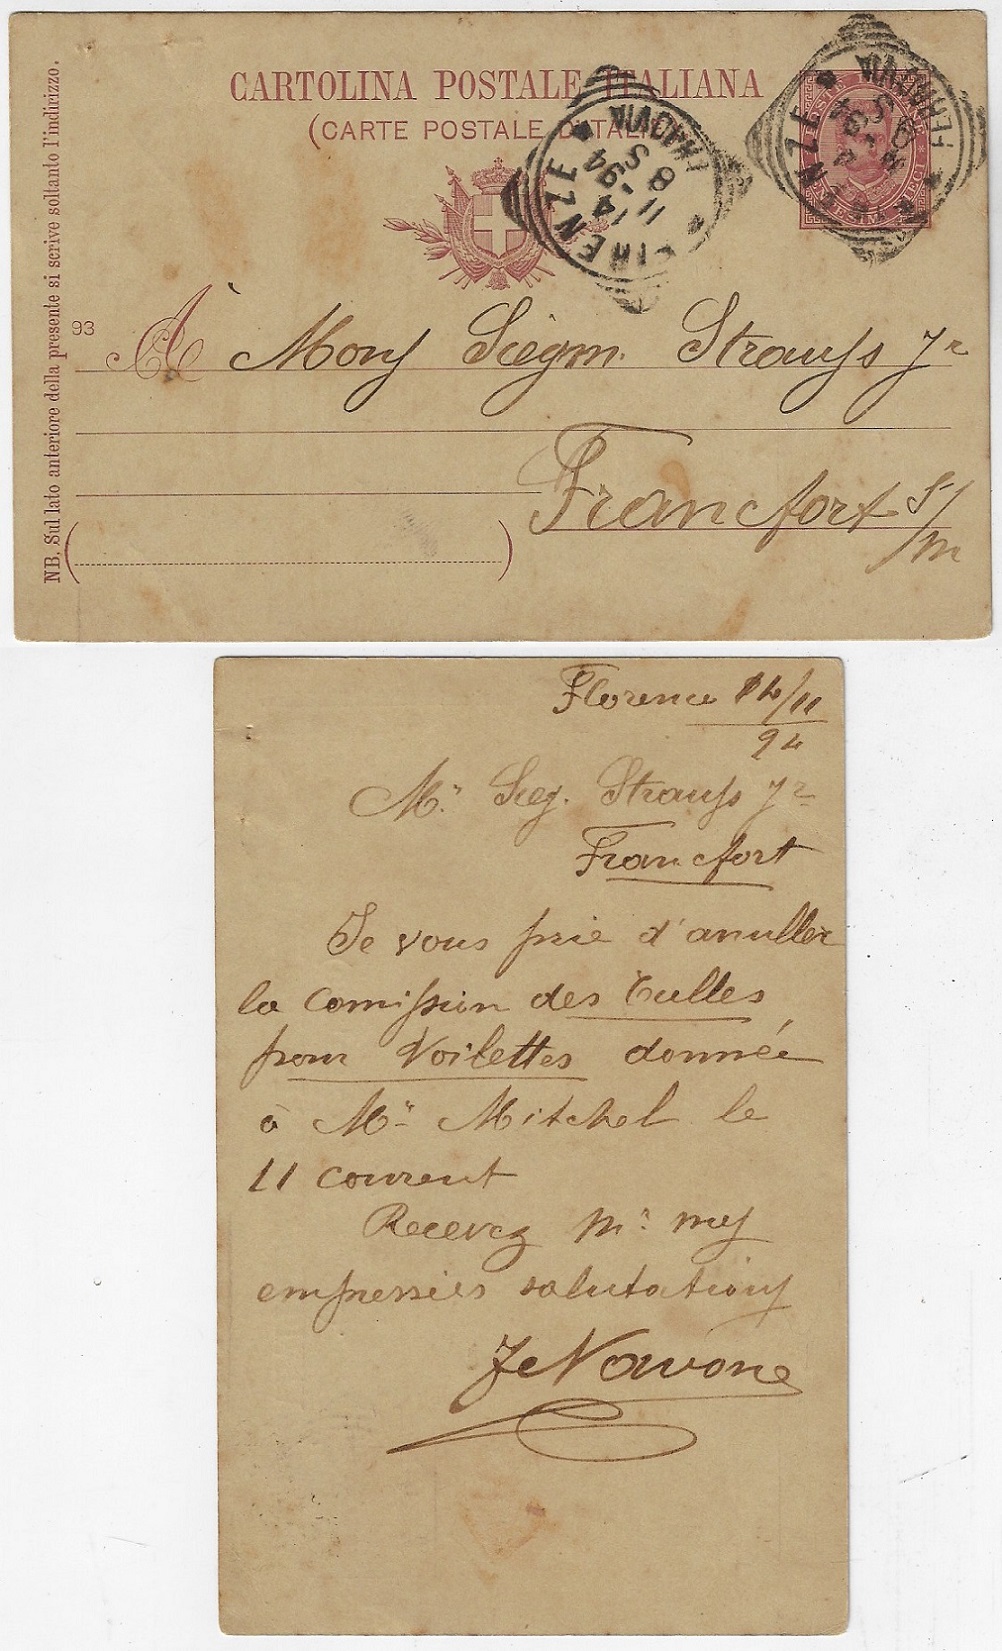 CARTOLINA POSTALE ITALIANA
(CARTE POSTALE D'ITALIE)
FIRENZE
FERROVIA
14 - 11
94
8 S
FIRENZE
FERROVIA
NB. Sul lato anteriore della presente si scrive soltanto l'indirizzo.
93
A Monſ Siegm. Strauſs Jr
Francfort s/m
Florence 14/11
94
Mr Sieg. Strauſs Jr
Francfort
Je vous prie d'anuller
la Comiſsion des Tulles
pour Voilettes donnée
à Mr Mitchel le
11 courent
Recevez Mr mes
empressées salutations
Je Navone